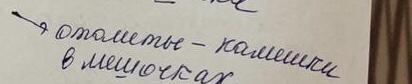 → отолиты – камешки
в мешочках